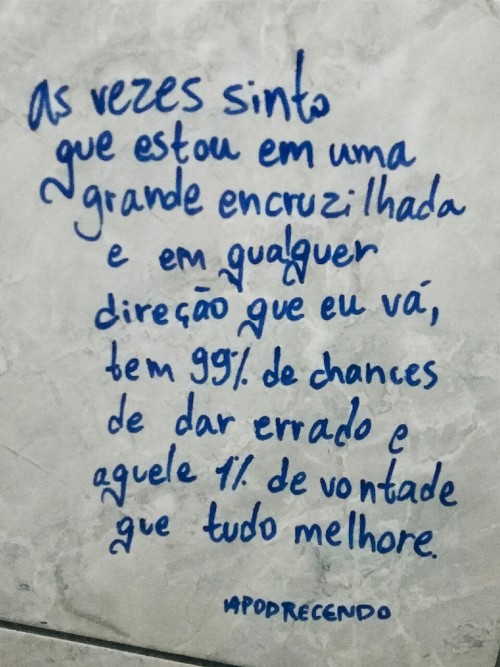 as vezes sinto
que estou em uma
grande encruzilhada
e em qualquer
direção que eu vá,
tem 99% de chances
de dar errado e
aquele 1% de vontade
que tudo melhore.
APODRECENDO